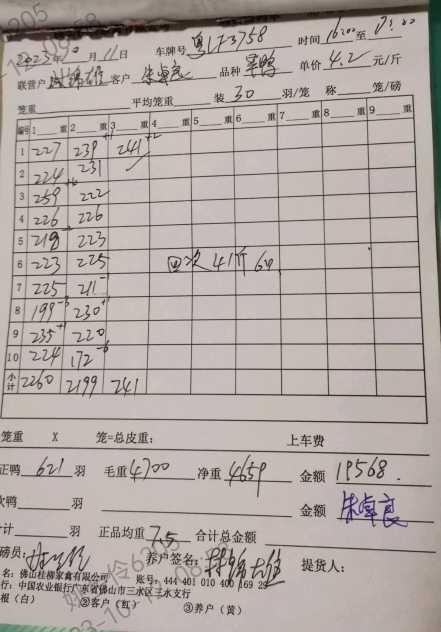 2023年 月11日 车牌号 粤LF3758 时间 16:00至17:00
联营户 客户 朱卓良 品种 单价 4.2 元/斤
笼重 平均笼重 装 30 羽/笼 称 笼/磅
编号 1 重 2 重 3 重 4 重 5 重 6 重 7 重 8 重 9 重
1 227 239 241
2 224 231
3 259 222
4 226 226
5 218 223
6 223 225 回次 41斤 6只
7 225 211
8 199 230
9 235 220
10 224 172
小计 2260 2199 241
笼重 X 笼=总皮重: 上车费
正鸭 621 羽 毛重 4700 净重 4659 金额 19568.
次鸭 羽 金额 朱卓良
合计 羽 正品均重 7.5 合计总金额
磅员: 养户签名: 提货人:
名: 佛山桂柳家禽有限公司 账号: 444 401 010 400 169 29
行: 中国农业银行广东省佛山市三水区三水支行
根（白） ②客户（红） ③养户（黄）